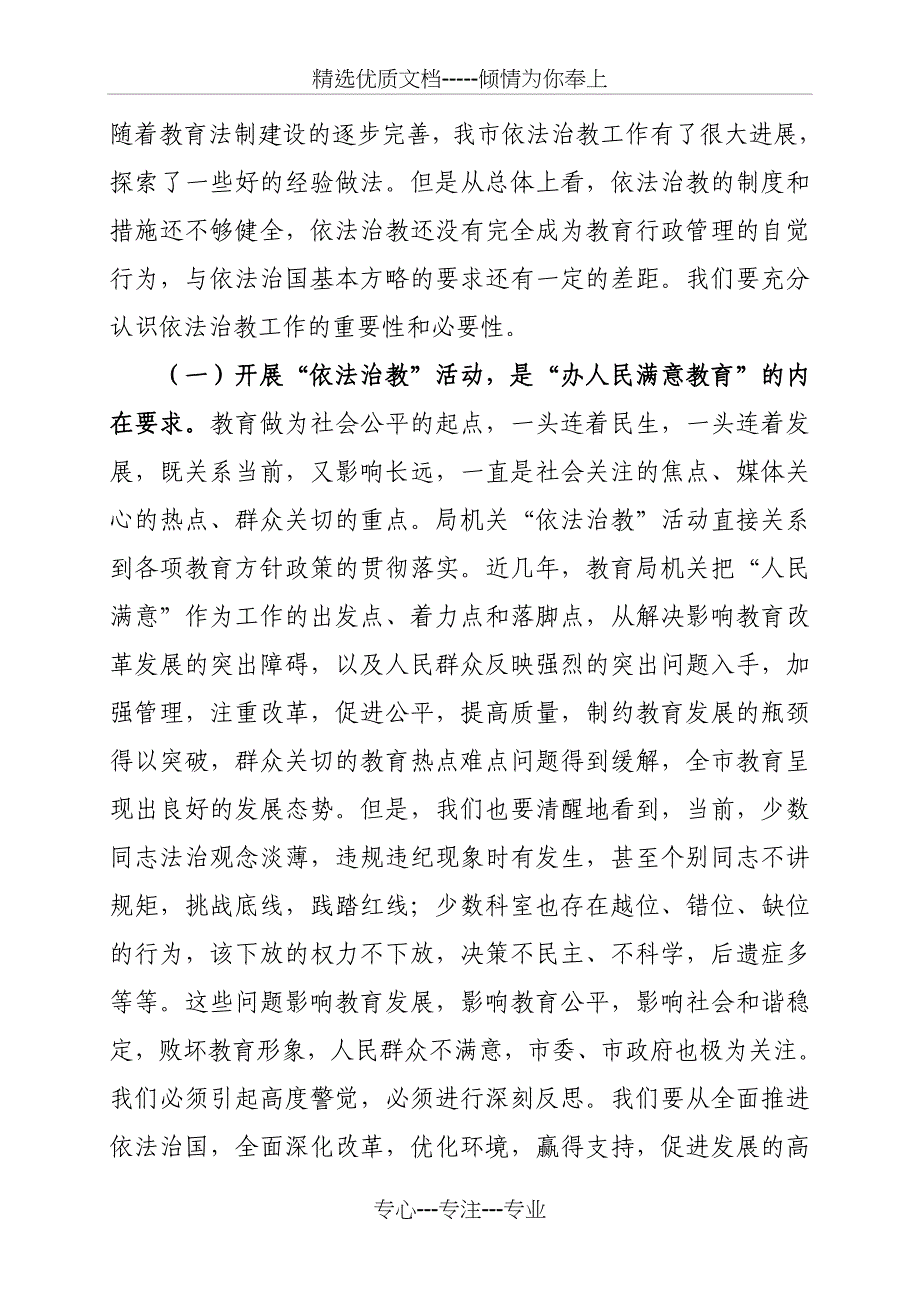 精选优质文档-----倾情为你奉上
随着教育法制建设的逐步完善，我市依法治教工作有了很大进展，
探索了一些好的经验做法。但是从总体上看，依法治教的制度和
措施还不够健全，依法治教还没有完全成为教育行政管理的自觉
行为，与依法治国基本方略的要求还有一定的差距。我们要充分
认识依法治教工作的重要性和必要性。
（一）开展“依法治教”活动，是“办人民满意教育”的内
在要求。教育做为社会公平的起点，一头连着民生，一头连着发
展，既关系当前，又影响长远，一直是社会关注的焦点、媒体关
心的热点、群众关切的重点。局机关“依法治教”活动直接关系
到各项教育方针政策的贯彻落实。近几年，教育局机关把“人民
满意”作为工作的出发点、着力点和落脚点，从解决影响教育改
革发展的突出障碍，以及人民群众反映强烈的突出问题入手，加
强管理，注重改革，促进公平，提高质量，制约教育发展的瓶颈
得以突破，群众关切的教育热点难点问题得到缓解，全市教育呈
现出良好的发展态势。但是，我们也要清醒地看到，当前，少数
同志法治观念淡薄，违规违纪现象时有发生，甚至个别同志不讲
规矩，挑战底线，践踏红线；少数科室也存在越位、错位、缺位
的行为，该下放的权力不下放，决策不民主、不科学，后遗症多
等等。这些问题影响教育发展，影响教育公平，影响社会和谐稳
定，败坏教育形象，人民群众不满意，市委、市政府也极为关注。
我们必须引起高度警觉，必须进行深刻反思。我们要从全面推进
依法治国，全面深化改革，优化环境，赢得支持，促进发展的高
专心---专注---专业